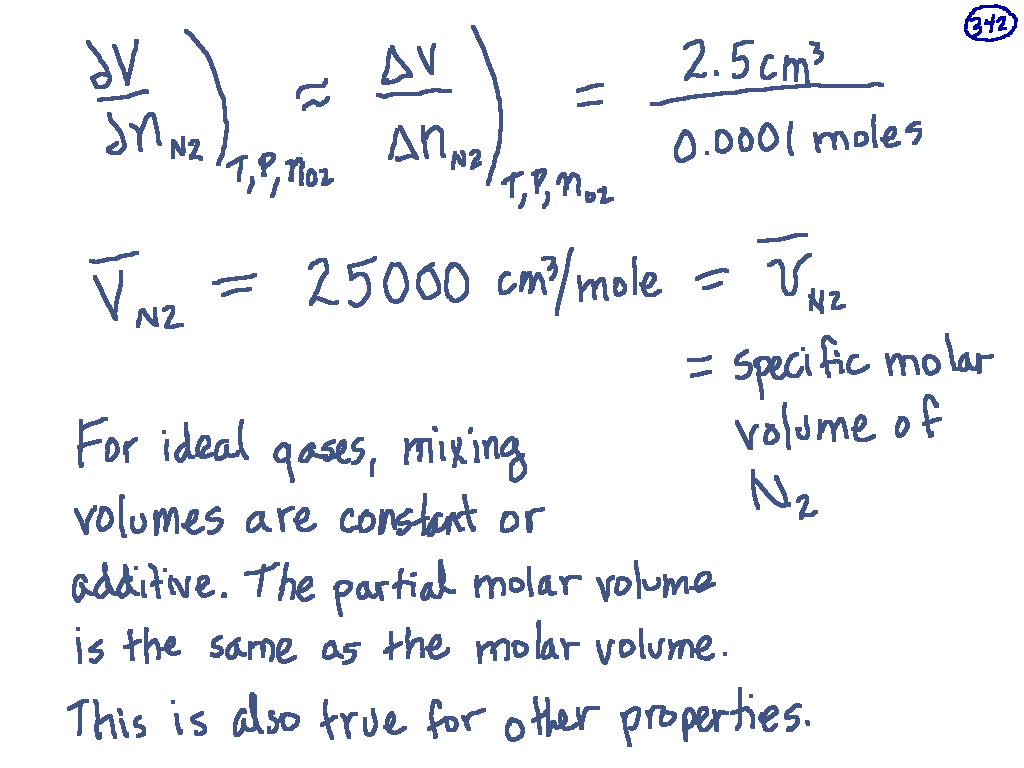 342
∂V/∂n_N2)_T,P,n_O2 ≈ ΔV/Δn_N2)_T,P,n_O2 = 2.5 cm³/0.0001 moles
V̄_N2 = 25000 cm³/mole = v̄_N2
= specific molar
volume of
N₂
For ideal gases, mixing
volumes are constant or
additive. The partial molar volume
is the same as the molar volume.
This is also true for other properties.